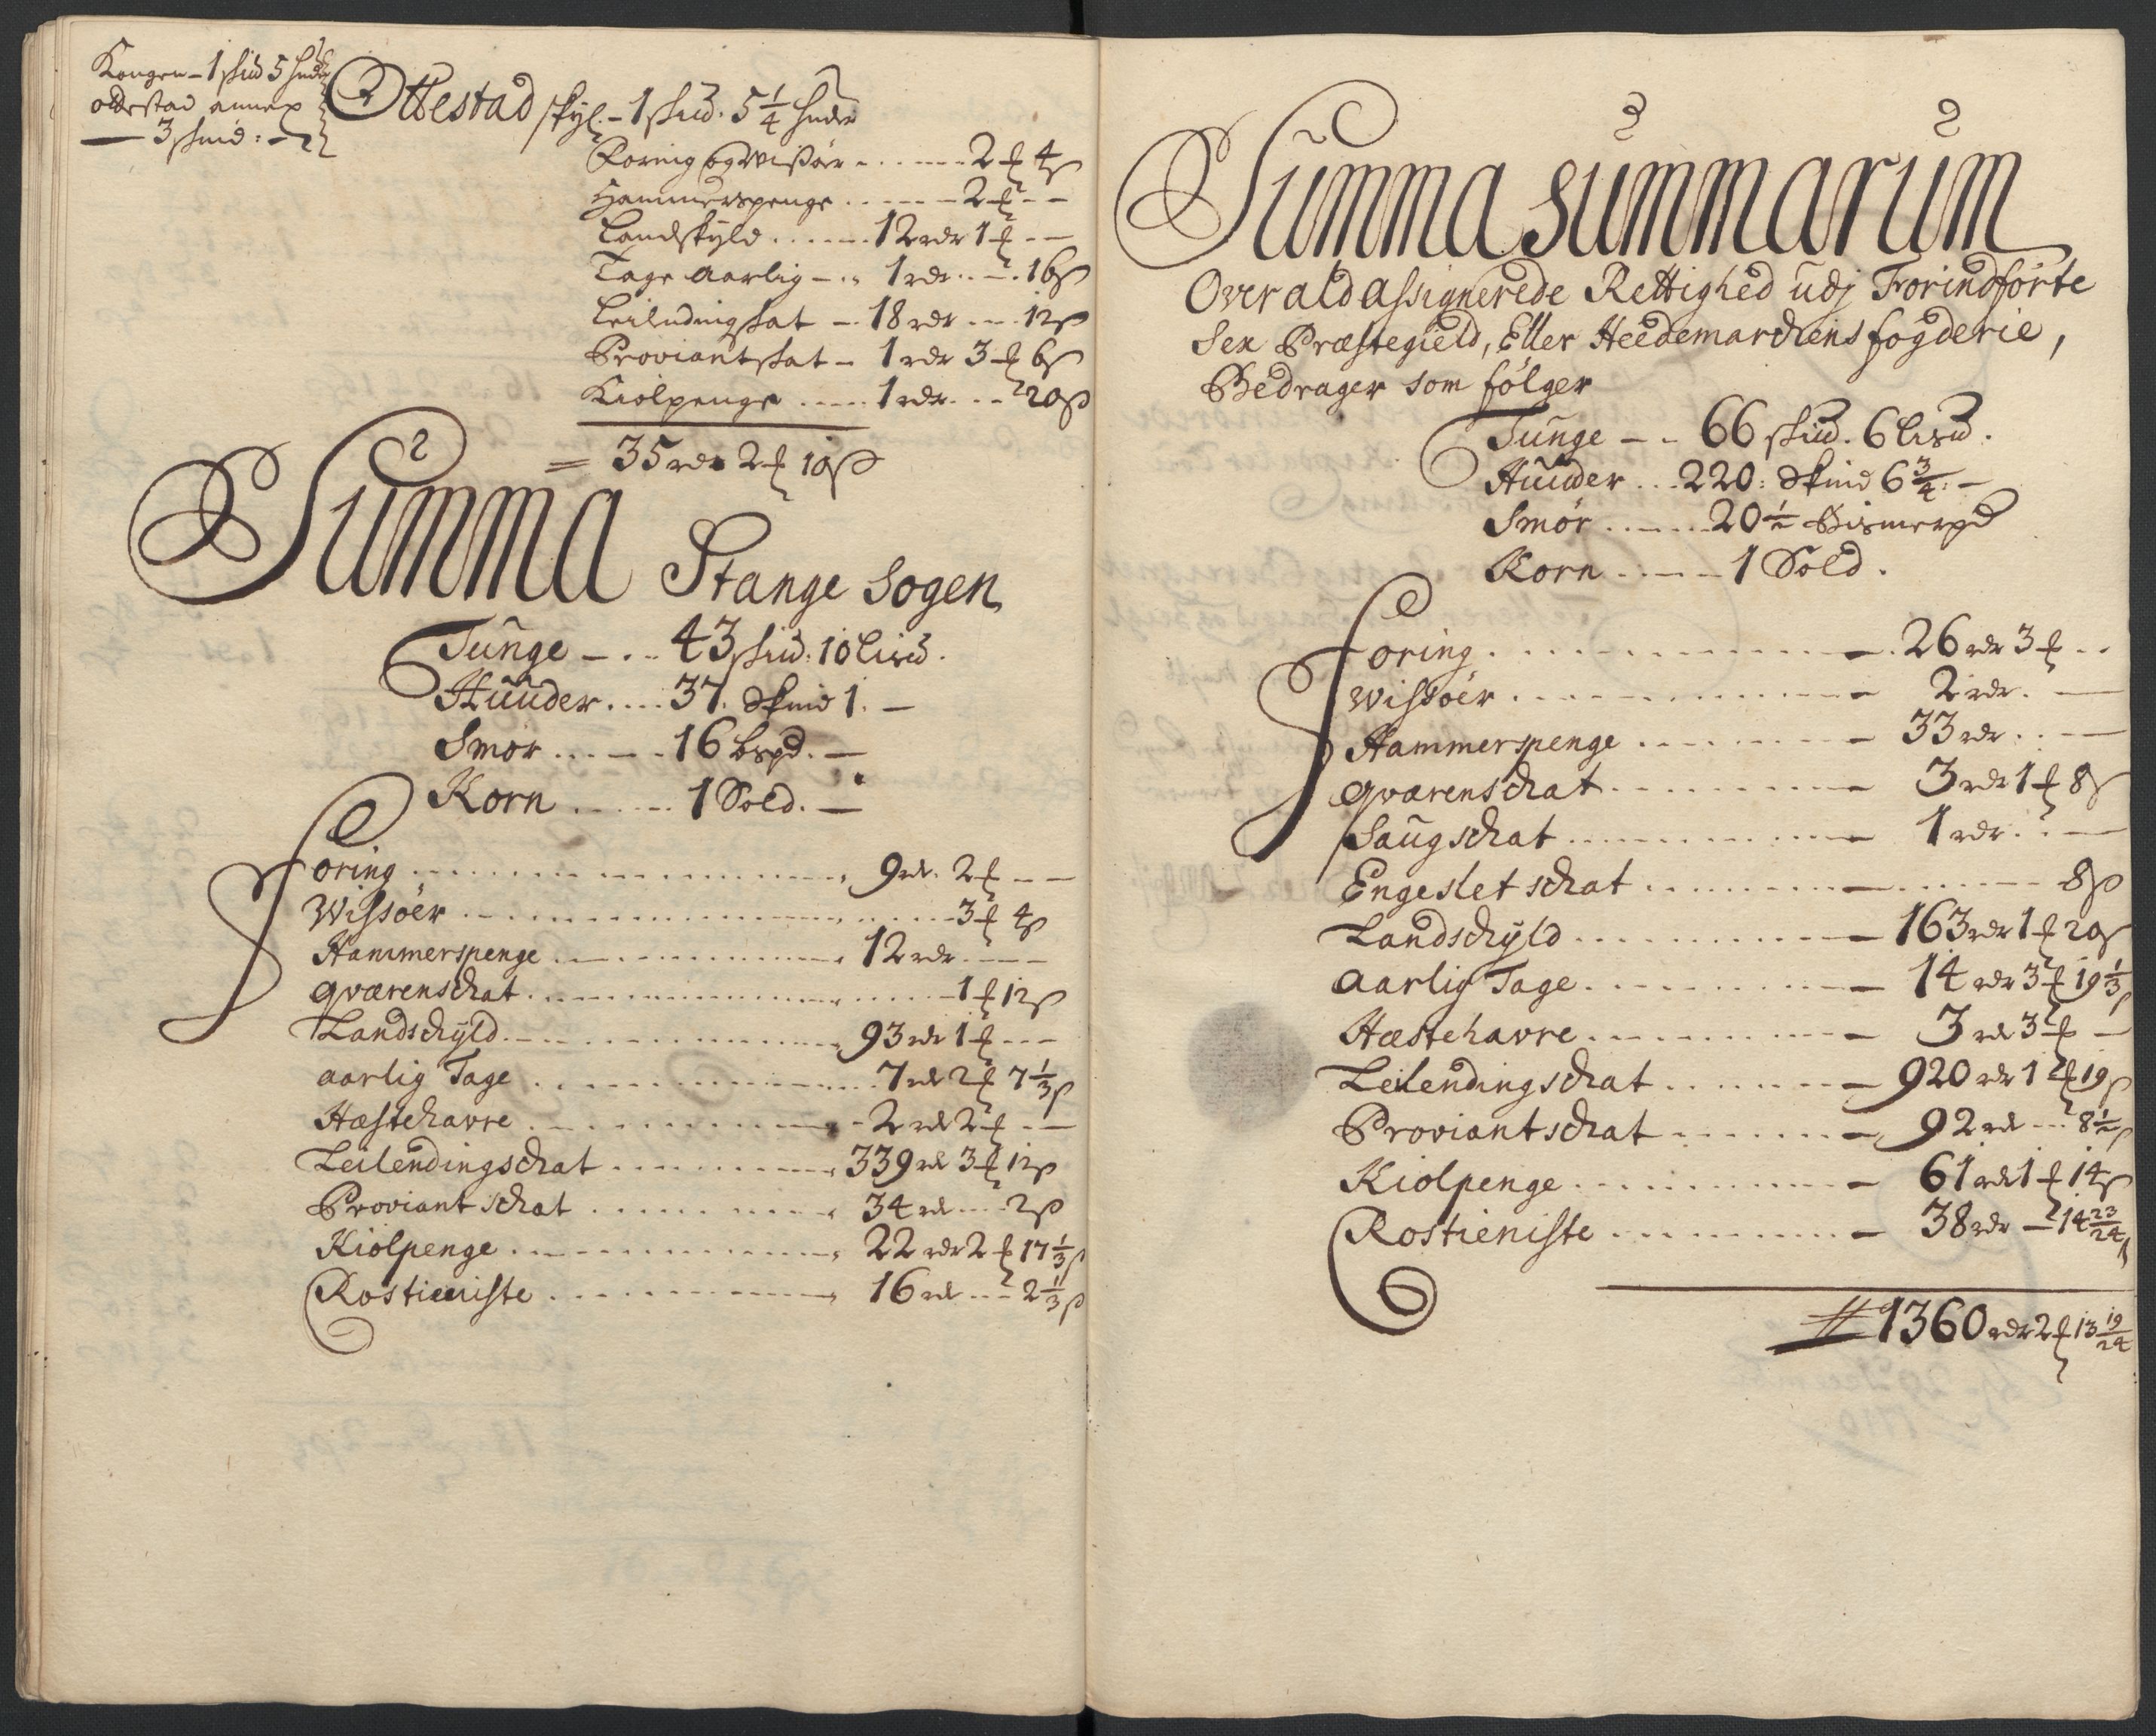 Kongen – 1 skud 5 huder
ottestad annex
– 3 skind : –
Ottestad skyl. – 1 skud. 5 1/4 huder
Foring og Wissøer . . . . . . 2 ƒ 4 ß
Hammerspenge . . . . . – 2 ƒ – –
Landskyld . . . . . . 12 rdr 1 ƒ – –
Tage Aarlig – . . 1 rdr . . – . 16 ß
Leilendingskat – . 18 rdr – – . 12 ß
Proviantskat – 1 rdr 3 ƒ 6 ß
Kiolpenge . . . . . 1 rdr. . . – 20 ß
= 35 rdr 2 ƒ 10 ß
Summa Stange Sogen
Tunge – . . 43 skud: 10 lisud.
Huuder . . . . 37. Skind 1. –
Smør . . . – . . 16 bspd. –
Korn . . . . . . 1 Sold. –
Foring . . . . . . . . . . 9 rdr. 2 ƒ – –
Wissøer . . . . . . . . . . 3 ƒ 4 ß
Hammerspenge . . . . . . . . . . 12 rdr – – –
Qværenschat . . . . . . . . . . 1 ƒ 12 ß
Landschyld . . . . . . . . . . 93 rdr 1 ƒ – – –
aarlig Tage . . . . . . . . . . 7 rdr 2 ƒ 7 1/3 ß
Hæstehavre . . . . . . . . . . 2 rdr 2 ƒ – –
Leilendingschat . . . . . . . . . . 339 rdr 3 ƒ 12 ß
Proviantschat . . . . . . . . . . 34 rdr . . . . 2 ß
Kiolpenge . . . . . . . . . . 22 rdr 2 ƒ 17 1/3 ß
Rostieniste . . . . . . . . . . 16 rdr – – 2 1/3 ß
Summa summarum
Over ald assignerede Rettighed udj Forindførte
Sex Præstegield, Eller Heedemarchens fogderie,
Bedrager som følger
Tunge – – 66 skud. 6 lisud.
Huuder . . . 220: Skind 6 3/4: –
Smør . . . . . . 20 1/2 Bismerpd
Korn . . . – – 1 Sold.
Foring . . . . . . . . . . 26 rdr 3 ƒ . .
Wissøer . . . . . . . . . . 2 rdr. –
Hammerspenge . . . . . . . . . . 33 rdr . . –
Qværenschat . . . . . . . . . . 3 rdr 1 ƒ 8 ß
Saugschat . . . . . . . . . . 1 rdr . . –
Engeslet schat . . . . . . . . . . 8 ß
Landschyld . . . . . . . . . . 163 rdr 1 ƒ 20 ß
Aarlig Tage . . . . . . . . . . 14 rdr 3 ƒ 19 1/3 ß
Hæstehavre . . . . . . . . . . 3 rdr 3 ƒ –
Leilendingschat . . . . . . . . . . 920 rdr 1 ƒ 19 ß
Proviantschat . . . . . . . . . . 92 rdr . . . 8 1/2 ß
Kiolpenge . . . . . . . . . . 61 rdr 1 ƒ 14 ß
Rostieniste . . . . . . . . . . 38 rdr – 14 23/24 ß
1360 rdr 2 ƒ 13 19/24